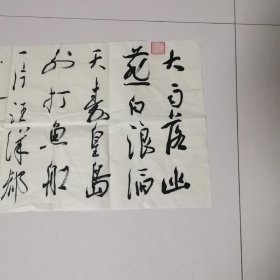 大雨落幽
燕白浪滔
天秦皇岛
外打鱼船
一片汪洋都